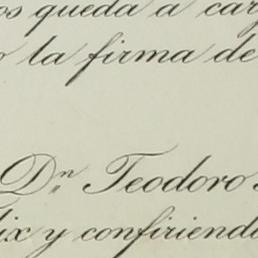 os queda a car
o la firma de
Dn Teodoro
lix y confiriendo